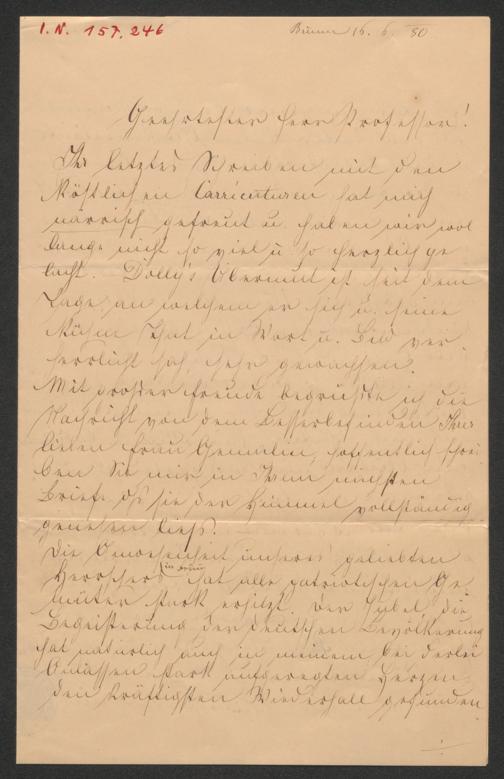 I.N. 157.246
Brünn 16. 6. 80
Geehrtester Herr Professor!
Ihr letztes Schreiben mit den
köstlichen Carricaturen hat mich
närrisch gefreut u. haben wir wol
lange nicht so viel u. so herzlich ge
lacht. Dolly's Übermut ist seit dem
Tage, an welchem er sich u. seine
kühne That in Wort u. Bild ver
herrlicht sah, sehr gewachsen.
Mit großer Freude begrüßte ich die
Nachricht von dem Besserbefinden Ihrer
lieben Frau Gemalin, hoffentlich schrei
ben Sie mir in Ihrem nächsten
Briefe, daß sie der Himmel vollständig
genesen ließ.
Die Anwesenheit unseres geliebten
Herrschers in Brünn hat alle patriotischen Ge
müter stark erhitzt. Der Jubel, die
Begeisterung der deutschen Bevölkerung
hat natürlich auch in meinem, bei derlei
Anlässen stark aufgeregten Herzen
den kräftigsten Wiederhall gefunden.